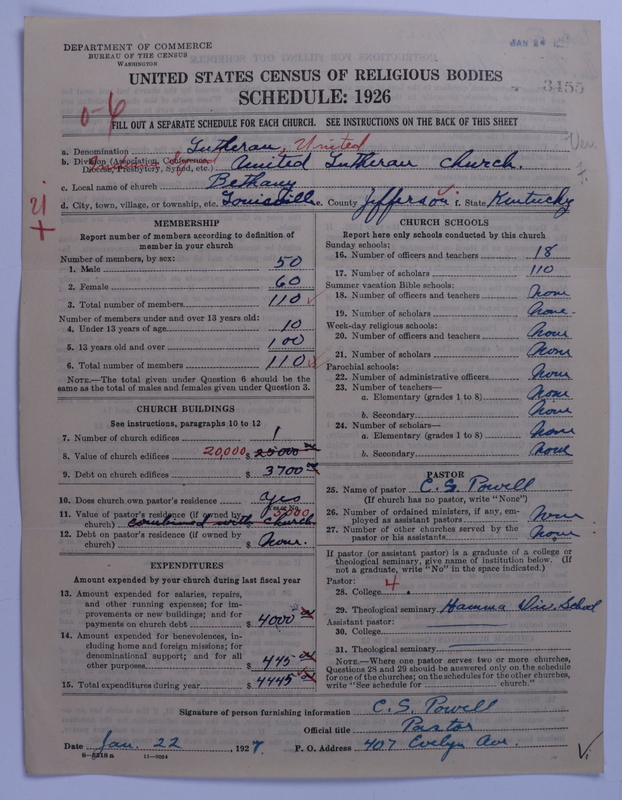 DEPARTMENT OF COMMERCE
BUREAU OF THE CENSUS
WASHINGTON
JAN 24
UNITED STATES CENSUS OF RELIGIOUS BODIES
SCHEDULE: 1926
3455
0-6
FILL OUT A SEPARATE SCHEDULE FOR EACH CHURCH. SEE INSTRUCTIONS ON THE BACK OF THIS SHEET
a. Denomination Lutheran, United
b. Division (Association, Conference, Diocese, Presbytery, Synod, etc.) United Lutheran church.
c. Local name of church Bethany
d. City, town, village, or township, etc. Louisville e. County Jefferson f. State Kentucky
MEMBERSHIP
Report number of members according to definition of
member in your church
Number of members, by sex:
1. Male 50
2. Female 60
3. Total number of members 110
Number of members under and over 13 years old:
4. Under 13 years of age 10
5. 13 years old and over 100
6. Total number of members 110
NOTE.—The total given under Question 6 should be
same as the total of males and females given under Question 3.
CHURCH BUILDINGS
See instructions, paragraphs 10 to 12
7. Number of church edifices 1
8. Value of church edifices 20,000 $ 25000
9. Debt on church edifices $ 3700
10. Does church own pastor's residence yes
(Yes or No)
11. Value of pastor's residence (if owned by
church) combined with church 5,000
12. Debt on pastor's residence (if owned by
church) $ None.
EXPENDITURES
Amount expended by your church during last fiscal year
13. Amount expended for salaries, repairs,
and other running expenses; for im-
provements or new buildings; and for
payments on church debt $ 4000
14. Amount expended for benevolences, in-
cluding home and foreign missions; for
denominational support; and for all
other purposes $ 445
15. Total expenditures during year $ 4445
CHURCH SCHOOLS
Report here only schools conducted by this church
Sunday schools:
16. Number of officers and teachers 18
17. Number of scholars 110
Summer vacation Bible schools:
18. Number of officers and teachers None
19. Number of scholars None.
Week-day religious schools:
20. Number of officers and teachers None
21. Number of scholars None
Parochial schools:
22. Number of administrative officers None
23. Number of teachers—
a. Elementary (grades 1 to 8) None
b. Secondary None
24. Number of scholars—
a. Elementary (grades 1 to 8) None
b. Secondary None
PASTOR
25. Name of pastor C. S. Powell
(If church has no pastor, write "None")
26. Number of ordained ministers, if any, em-
ployed as assistant pastors None
27. Number of other churches served by the
pastor or his assistants None
If pastor (or assistant pastor) is a graduate of a college or
theological seminary, give name of institution below. (If
not a graduate, write "No" in the space indicated.)
Pastor:
28. College 4
29. Theological seminary Hamma Div. School
Assistant pastor:
30. College
31. Theological seminary
NOTE.—Where one pastor serves two or more churches,
Questions 28 and 29 should be answered only on the schedule
for one of the churches; on the schedules for the other churches,
write "See schedule for church."
Signature of person furnishing information C. S. Powell
Official title Pastor
Date Jan. 22, 1927. P. O. Address 407 Evelyn Ave.
8-5218a 11-9084